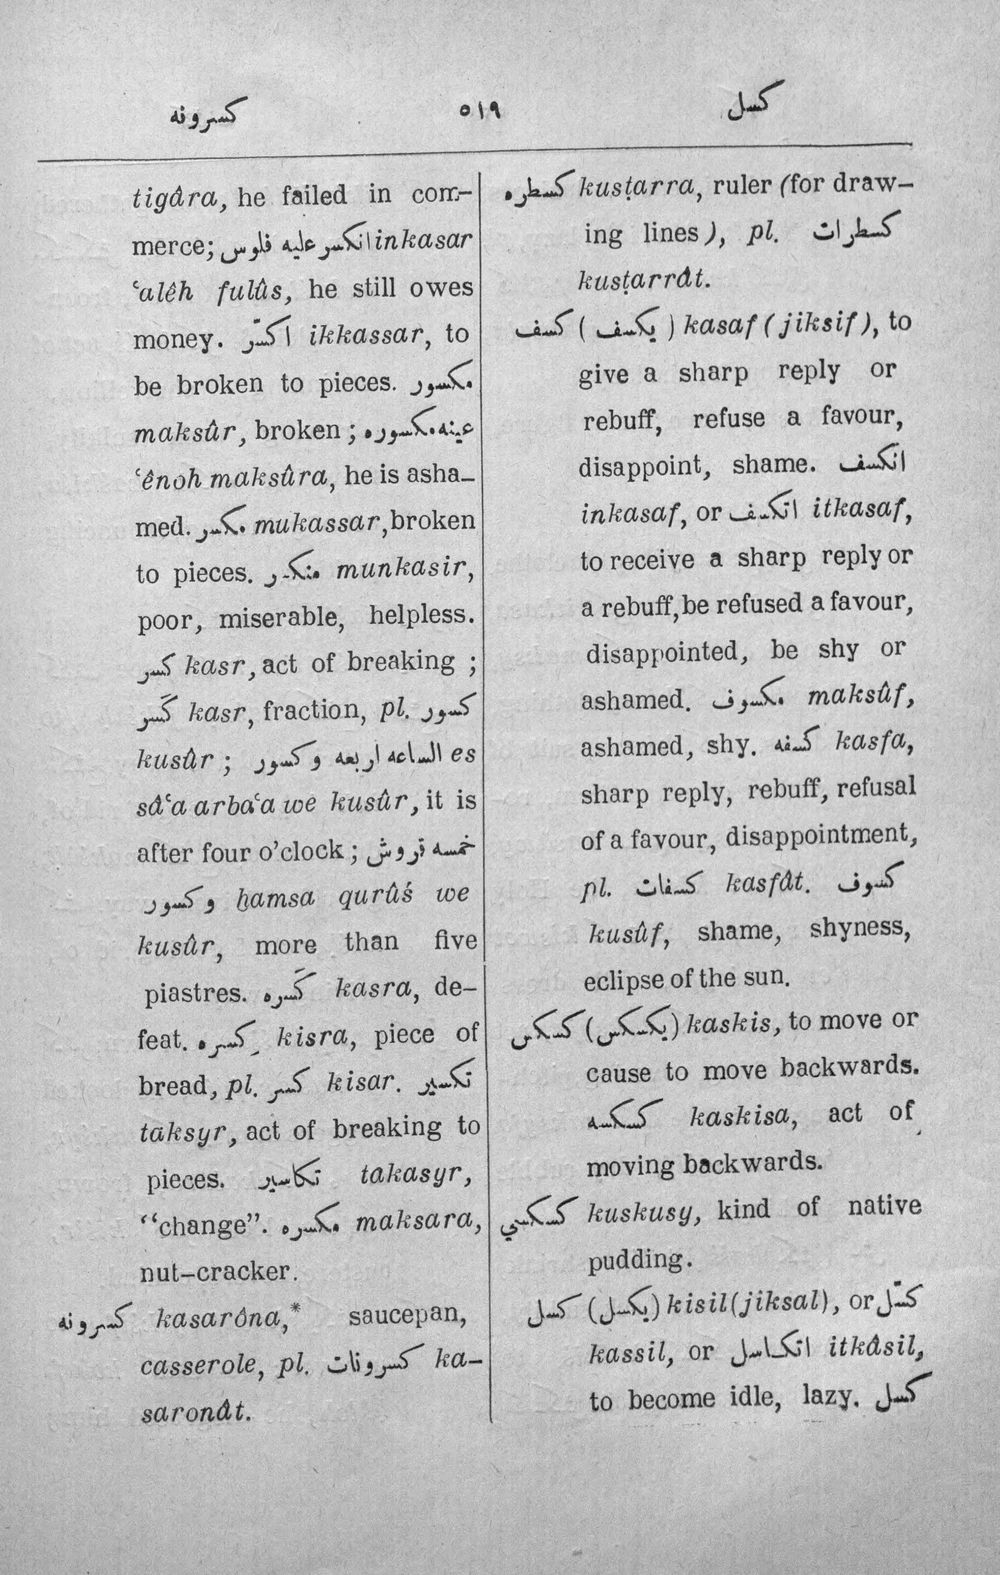 كسرونه ٥١٩ كسل
tigâra, he failed in com-
merce; انكسر عليه فلوس inkasar
ʿalêh fulûs, he still owes
money. اكسّر ikkassar, to
be broken to pieces. مكسور
maksûr, broken ; عينه مكسوره
ʿênoh maksûra, he is asha-
med. مكسر mukassar, broken
to pieces. منكسر munkasir,
poor, miserable, helpless.
كسر kasr, act of breaking ;
كَسر kasr, fraction, pl. كسور
kusûr ; الساعه اربعه وكسور es
sâʿa arbaʿa we kusûr, it is
after four o'clock ; خمسه قروش
وكسور ḫamsa qurûś we
kusûr, more than five
piastres. كَسره kasra, de-
feat. كسره kisra, piece of
bread, pl. كسر kisar. تكسير
taksyr, act of breaking to
pieces. تكاسير takasyr,
‘‘change”. مكسره maksara,
nut-cracker.
كسرونه kasarôna,* saucepan,
casserole, pl. كسرونات ka-
saronât.
كسطره kusṭarra, ruler (for draw-
ing lines), pl. كسطرات
kusṭarrât.
كسف ( يكسف ) kasaf (jiksif), to
give a sharp reply or
rebuff, refuse a favour,
disappoint, shame. انكسف
inkasaf, or اتكسف itkasaf,
to receive a sharp reply or
a rebuff, be refused a favour,
disappointed, be shy or
ashamed. مكسوف maksûf,
ashamed, shy. كسفه kasfa,
sharp reply, rebuff, refusal
of a favour, disappointment,
pl. كسفات kasfât. كسوف
kusûf, shame, shyness,
eclipse of the sun.
كسكس (يكسكس) kaskis, to move or
cause to move backwards.
كسكسه kaskisa, act of
moving backwards.
كسكسي kuskusy, kind of native
pudding.
كسل (يكسل) kisil (jiksal), or كسّل
kassil, or اتكاسل itkâsil,
to become idle, lazy. كسل